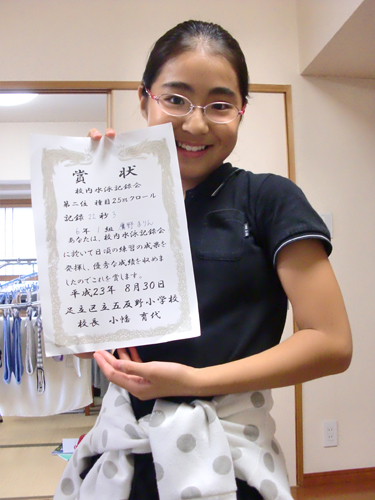 賞状
校内水泳記録会
第二位 種目25mクロール
記録 22秒3
6年1組
あなたは、校内水泳記録会
に於いて日頃の練習の成果を
発揮し、優秀な成績を収めまし
たのでこれを賞します。
平成23年 8月30日
足立区立五反野小学校
校長 小幡 育代